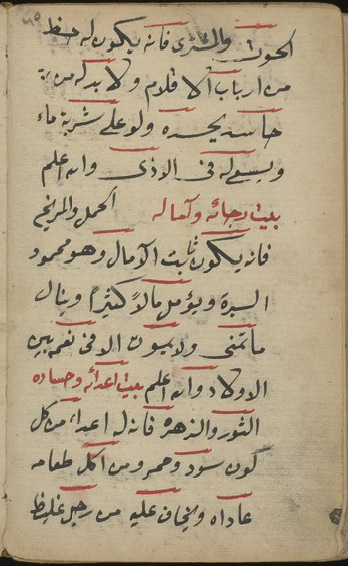 الحوت والمشترى فانه يكون له حظ
من ارباب الاقلام ولا بد له من
حاسد يحسده ولو على شربة ماء
ويسعى له فى الاذى والله اعلم
بيت رجائه وآماله الحمل والمريخ
فانه يكون ثابت الآمال وهو محمود
السيرة ويؤمل مالاً كثيراً وينال
ما تمنى ولا يموت الا فى نعمه
الاولاد والله اعلم بيت اعدائه وحساده
الثور والزهره فانه له اعداء من كل
لون سود وحمر ومن اكل طعامه
عاداه ويخاف عليه من رجل غليظ